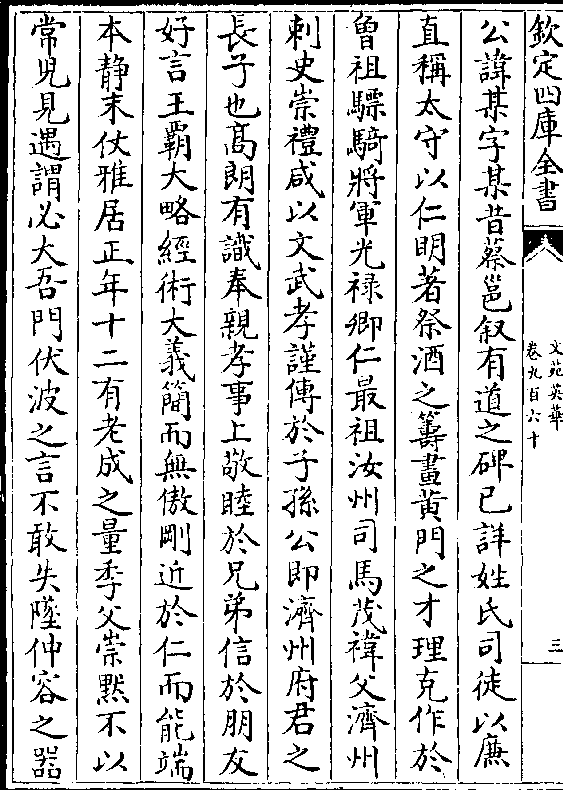 欽定四庫全書
文苑英華
卷九百六十
三
公諱某字某昔蔡邕叙有道之碑已詳姓氏司徒以廉
直稱太守以仁明著祭酒之籌畫黄門之才理克作於
曾祖驃騎將軍光禄卿仁最祖汝州司馬茂禕父濟州
刺史崇禮咸以文武孝謹傳於子孫公即濟州府君之
長子也髙朗有識奉親孝事上敬睦於兄弟信於朋友
好言王霸大略經術大義簡而無傲剛近於仁而能端
本静末仗雅居正年十二有老成之量季父崇黙不以
常児見遇謂必大吾門伏波之言不敢失墜仲容之器